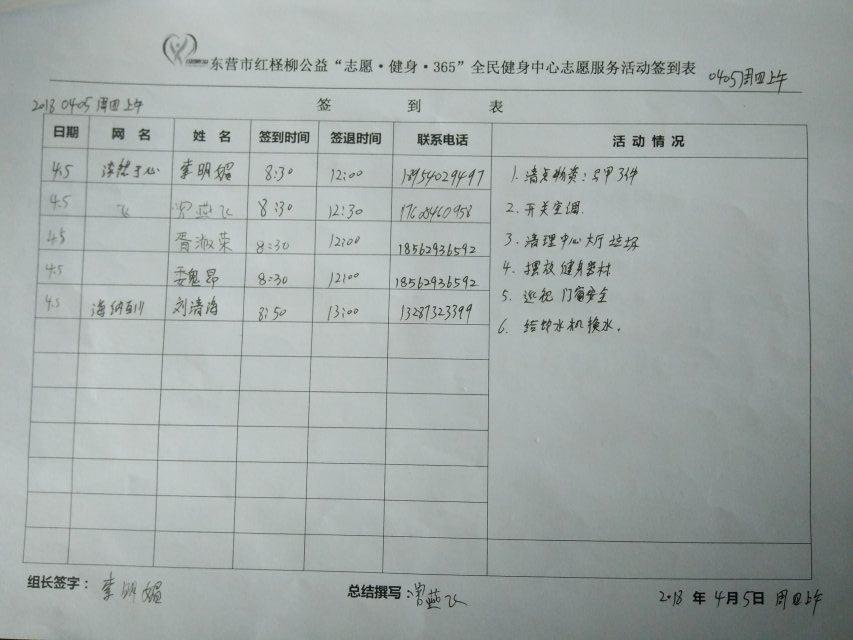 东营市红柽柳公益“志愿·健身·365”全民健身中心志愿服务活动签到表 0405周四上午
2018 0405 周四上午 签 到 表
日期 网 名 姓 名 签到时间 签退时间 联系电话 活 动 情 况
4.5 淡然于心 李明媚 8:30 12:00 18954029497
4.5 飞 罗燕飞 8:30 12:30
4.5 胥淑荣 8:30 12:00 18562936592
4.5 8:30 12:00 18562936592
4.5 海纳百川 刘清海 8:50 13:00 13287323399
1. 清点物资:马甲3件
2. 开关空调.
3. 清理中心大厅垃圾
4. 摆放健身器材
5. 巡视门窗安全
6. 给饮水机换水.
组长签字: 李明媚 总结撰写: 罗燕飞 2018 年 4月5日 周四上午